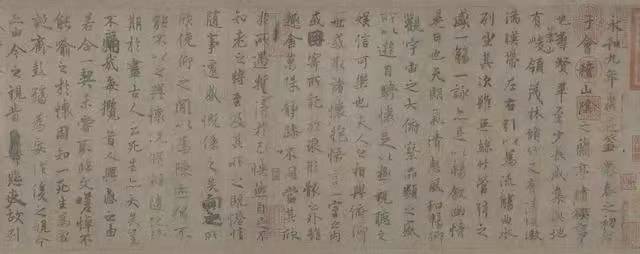 永和九年歲在癸丑暮春之初會
于會稽山陰之蘭亭脩禊事
也羣賢畢至少長咸集此地
有峻領茂林脩竹又有清流激
湍暎帶左右引以為流觴曲水
列坐其次雖無絲竹管弦之
盛一觴一詠亦足以暢敘幽情
是日也天朗氣清惠風和暢仰
觀宇宙之大俯察品類之盛
所以遊目騁懷足以極視聽之
娛信可樂也夫人之相與俯仰
一世或取諸懷抱悟言一室之內
或因寄所託放浪形骸之外雖
趣舍萬殊靜躁不同當其欣
於所遇蹔得於己快然自足不
知老之將至及其所之既惓情
隨事遷感慨係之矣向之所
欣俛仰之閒以為陳迹猶不
能不以之興懷況脩短隨化終
期於盡古人云死生亦大矣豈
不痛哉每攬昔人興感之由
若合一契未嘗不臨文嗟悼不
能喻之於懷固知一死生為虛
誕齊彭殤為妄作後之視今
亦由今之視昔悲夫故列